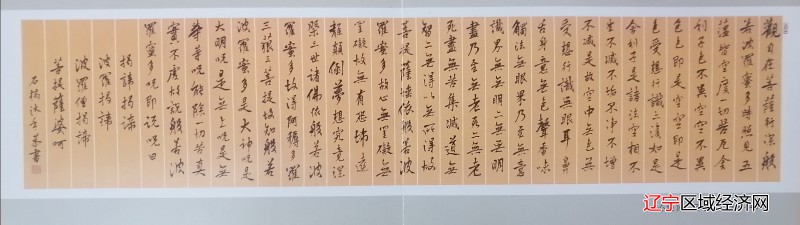 觀自在菩薩行深般
若波羅蜜多時照見五
蘊皆空度一切苦厄舍
利子色不異空空不異
色色即是空空即是
色受想行識亦復如是
舍利子是諸法空相不
生不滅不垢不淨不增
不減是故空中無色無
受想行識無眼耳鼻
舌身意無色聲香味
觸法無眼界乃至無意
識界無無明亦無無明
盡乃至無老死亦無老
死盡無苦集滅道無
智亦無得以無所得故
菩提薩埵依般若波
羅蜜多故心無罣礙無
罣礙故無有恐怖遠
離顛倒夢想究竟涅
槃三世諸佛依般若波
羅蜜多故得阿耨多羅
三藐三菩提故知般若
波羅蜜多是大神咒是
大明咒是無上咒是無
等等咒能除一切苦真
實不虛故說般若波
羅蜜多咒即說咒曰
揭諦揭諦
波羅揭諦
波羅僧揭諦
菩提薩婆訶
沐手
書
辽宁区域经济网